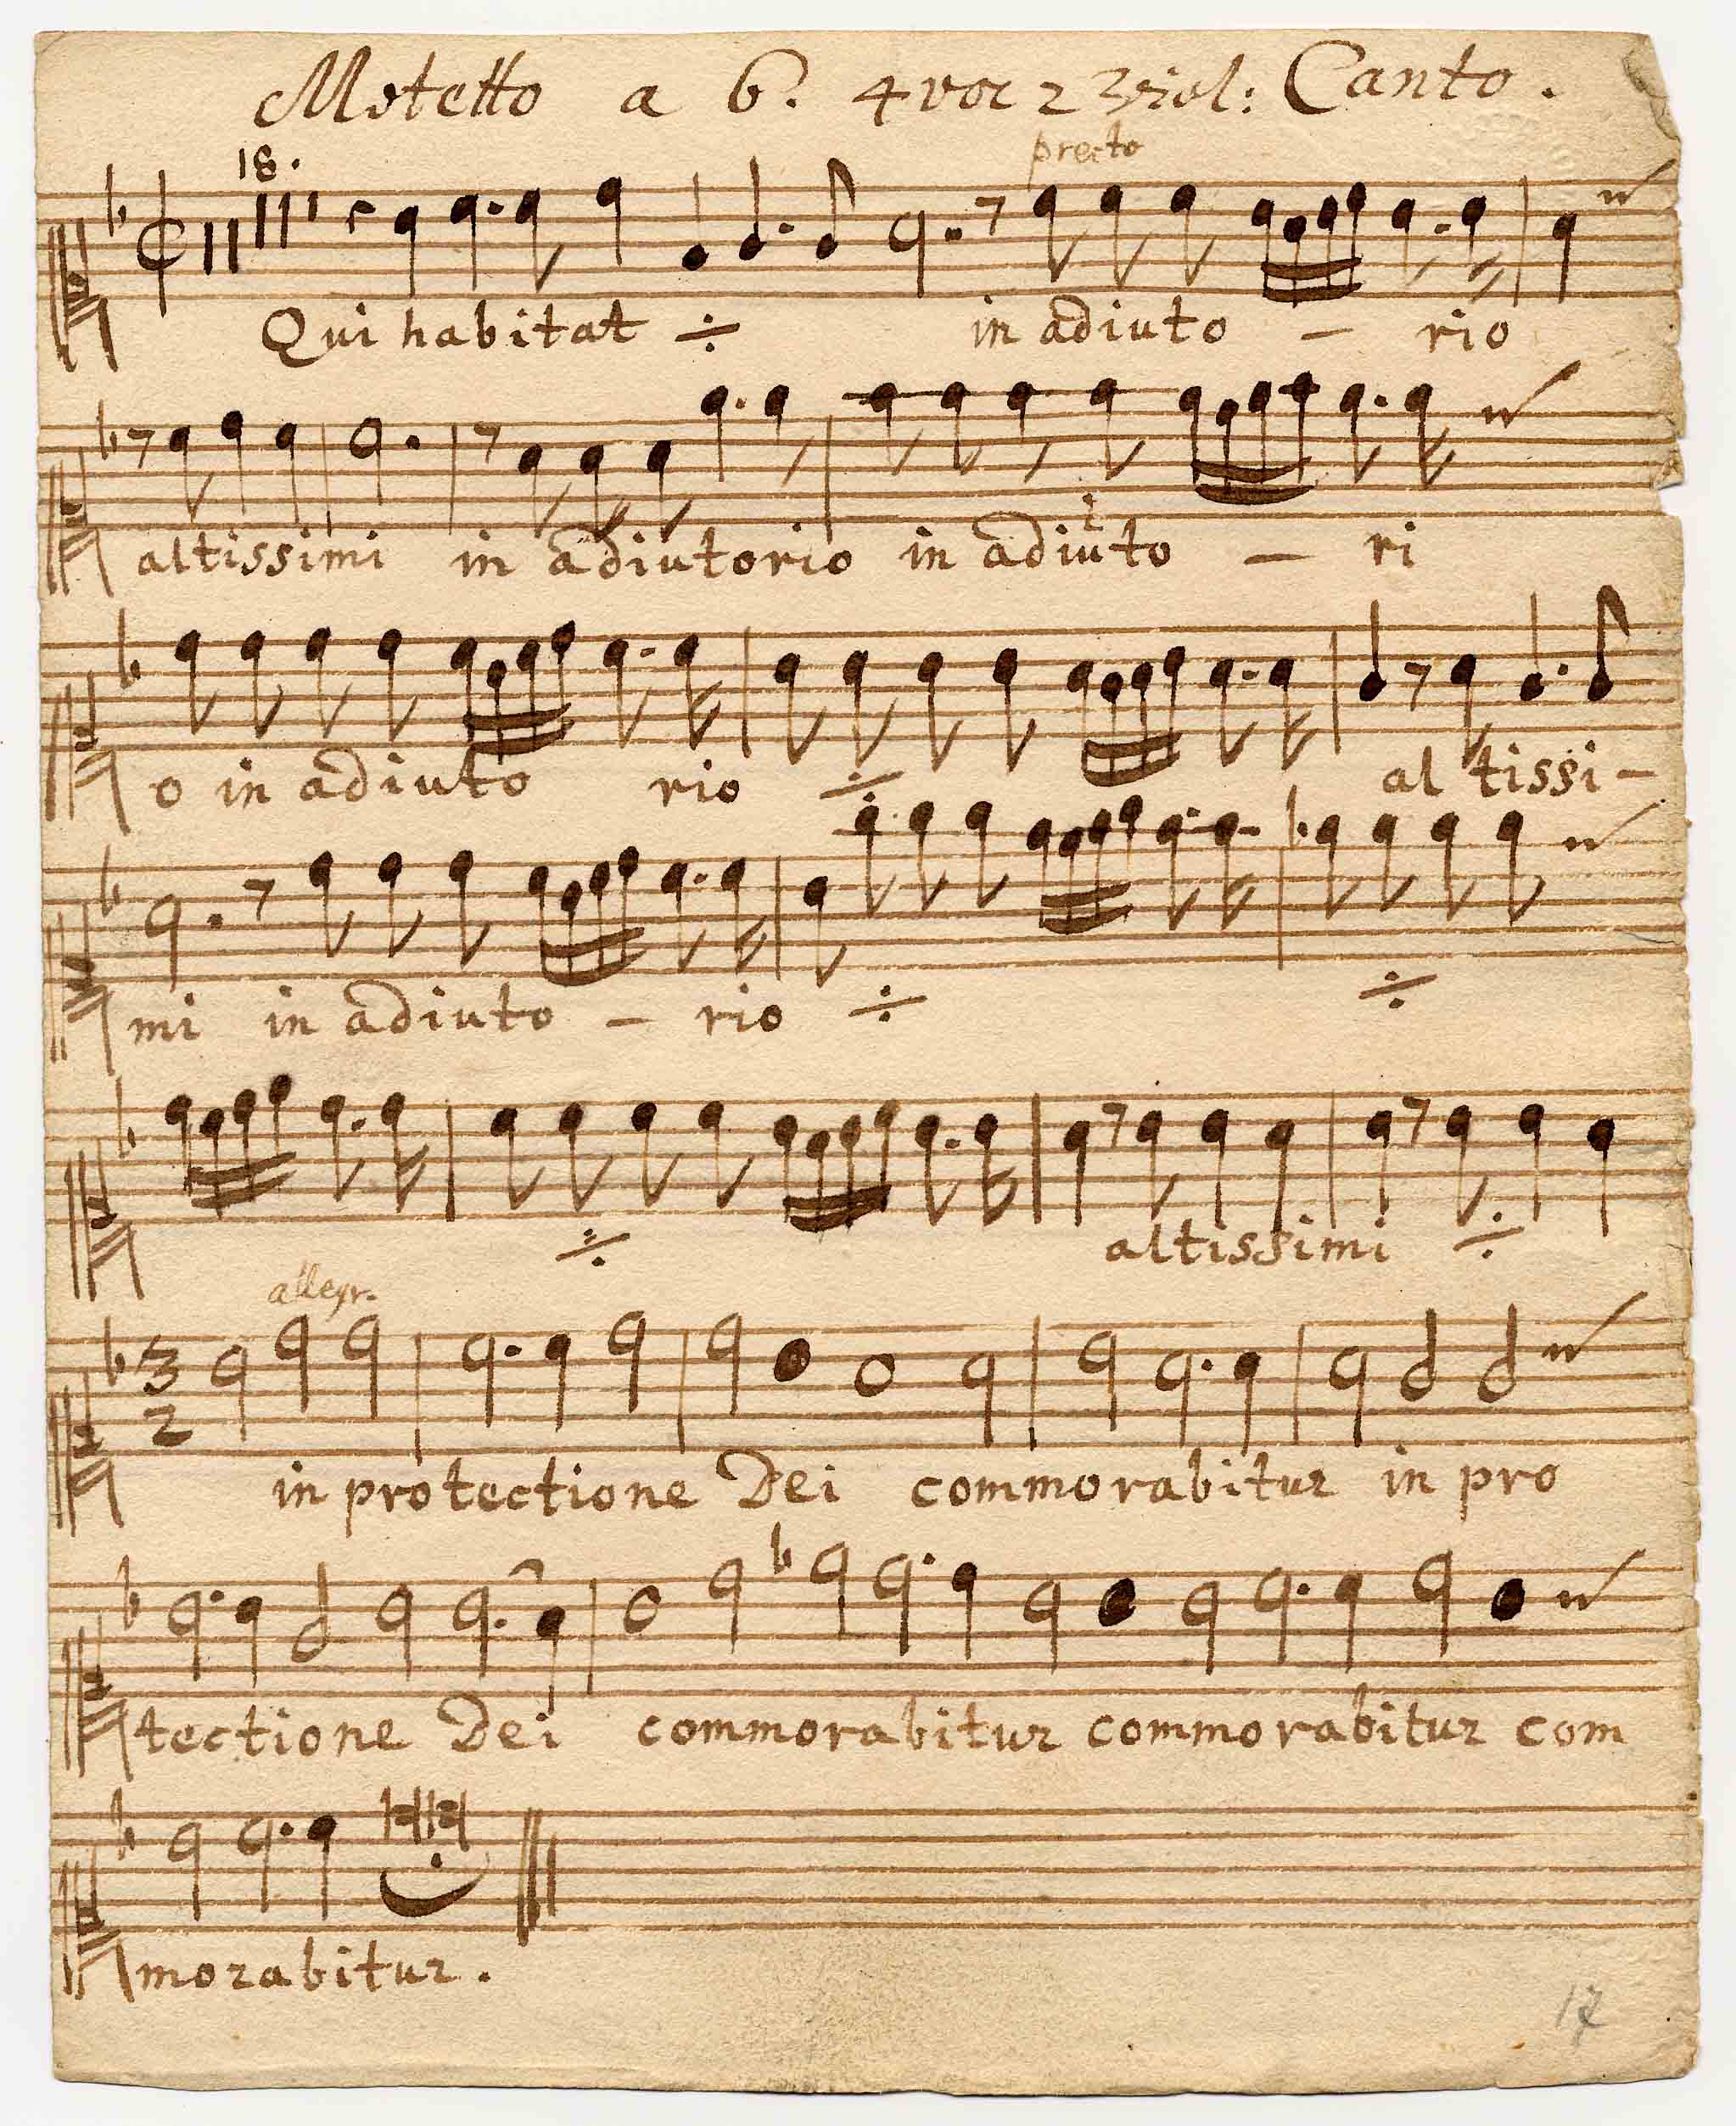 Motetto a 6. 4 voc 2 Viol: Canto.
presto
18.
Qui habitat ÷ in adiuto – rio
altissimi in adiutorio in adiuto – ri
o in adiuto rio ÷ al tissi –
mi in adiuto – rio ÷ ÷
÷ altissimi ÷
allegr.
3
2
in protectione Dei commorabitur in pro
tectione Dei commorabitur commorabitur com
morabitur.
17